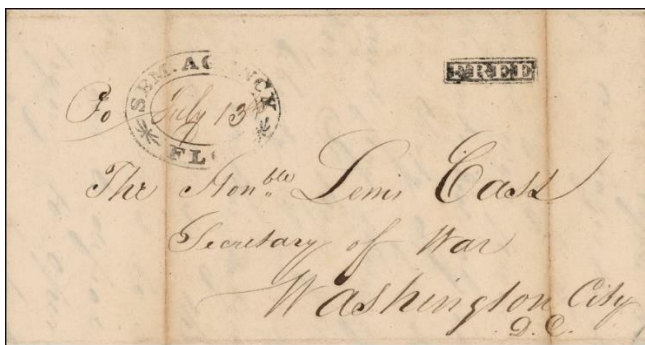 SEM. AGENCY
FREE
To July 13th
FLO
The Honble Lewis Cass
Secretary of War
Washington City
D.C.